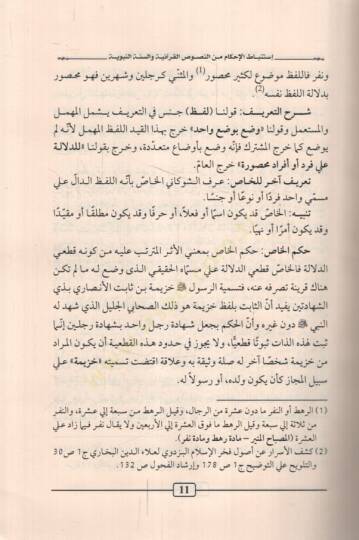 إستنباط الإحكام من النصوص القرآنية والسنة النبوية
ونفر فاللفظ موضوع لكثير محصور(1) والمثنّى كرجلين وشهرين فهو محصور
بدلالة اللفظ نفسه(2).
شـرح التعريـف: قولنـا (لفـظ) جنـس في التعريـف يشـمل المهمـل
والمستعمل وقولنا «وضع بوضع واحد» خرج بهذا القيد اللفظ المهمل لأنه لم
يوضع كما خرج المشترك فإنّه وضع بأوضاع متعدّدة، وخرج بقولنا «للدلالة
على فرد أو أفراد محصورة» خرج العامّ.
تعريـف آخـر للخاص: عـرف الشـوكاني الخـاصّ بأنّـه اللفـظ الـدالّ علـى
مسمّى واحد فردًا أو نوعًا أو جنسًا.
تنبيـه: الخاصّ قد يكون اسمًا أو فعلًا، أو حرفًا وقد يكون مطلقًا أو مقيّدًا
وقد يكون أمرًا أو نهيًا.
حكـم الخاص: حكـم الخاص بمعنى الأثـر المترتب عليـه مـن كونـه قطعي
الدلالة فالخاصّ قطعي الدلالة على مسمّاه الحقيقي الذي وضع لـه ما لم تكـن
هناك قرينة تصرفه عنه، فتسمية الرسول ﷺ خزيمة بن ثابت الأنصاري بذي
الشهادتين يفيد أنّ الثابت بلفظ خزيمة هو ذلك الصحابي الجليل الذي شهد له
النبي ﷺ دون غيره وأنّ الحكم بجعل شهادة رجل واحد بشهادة رجلين إنّما
ثبت لهذه الذات ثبوتًا قطعيًّا، ولا يجوز في حدود هذه القطعية أن يكون المراد
من خزيمة شخصًا آخر له صلة وثيقة به وعلاقة اقتضت تسميته «خزيمة» على
سبيل المجاز كأن يكون ولده، أو رسولاً له.
(1) الرهط أو النفر ما دون عشرة من الرجال، وقيل الرهط من سبعة إلى عشرة، والنفر
من ثلاثة إلى سبعة وقيل الرهط ما فوق العشرة إلى الأربعين ولا يقال نفر فيما زاد على
العشرة (المصباح المنير - مادة رهط ومادة نفر).
(2) كشف الأسرار عن أصول فخر الإسلام البزدوي لعلاء الدين البخاري ج1 ص30
والتلويح على التوضيح ج1 ص 178 وإرشاد الفحول ص 132.
11